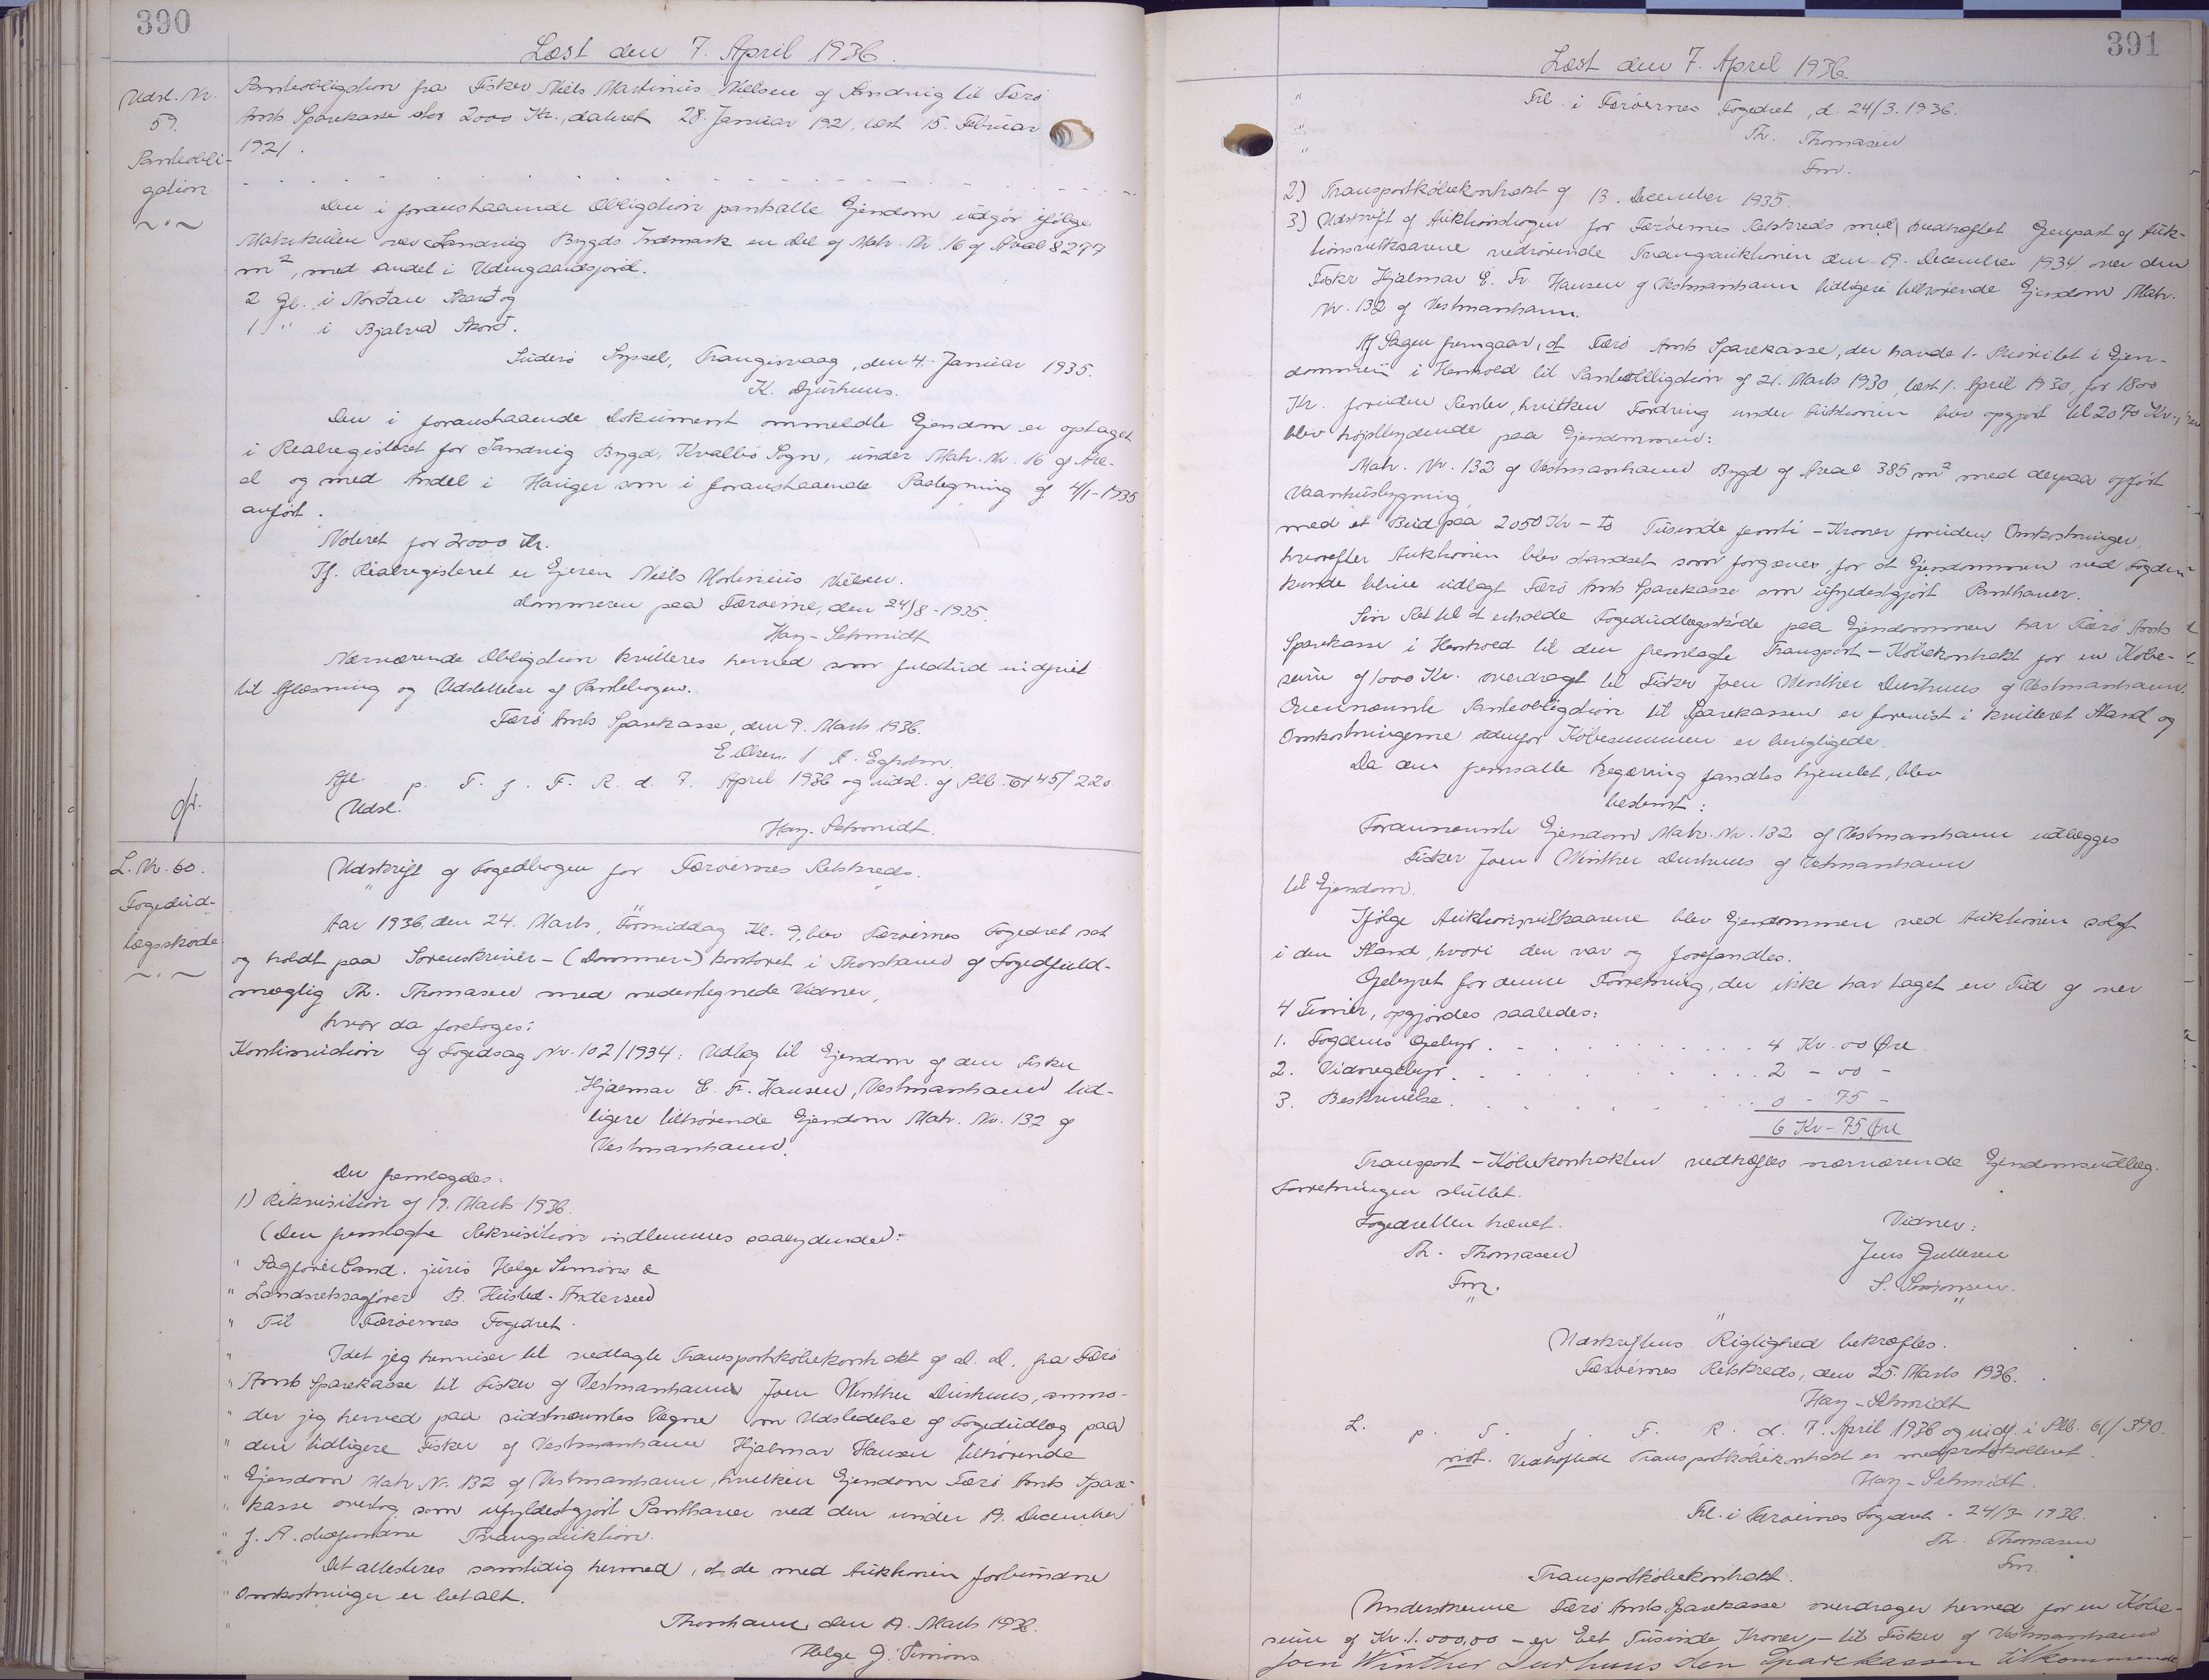 390
Læst den 7. April 1936.
Udsl. Nr.
59.
Panteobli-
gation
Panteobligation fra Fisker Niels Martinius Nielsen af Sandvig til Færø
Amts Sparekasse stor 2000 Kr., dateret 28. Januar 1921, læst 15. Februar
1921.
Den i foranstaaende Obligation pantsatte Ejendom udgør ifølge
Matrikulen over Sandvig Bygds Indmark en Del af Matr. Nr. 16 af Areal 8297
m², med Andel i Udengaardsjord.
2 Gl. i Norðan Skarð og
1 " i Bjalva Skorð.
Suderø Syssel, Trangisvaag, den 4. Januar 1935.
K. Djurhuus.
Den i foranstaaende Dokument ommeldte Ejendom er optaget
i Realregisteret for Sandvig Bygd, Kvalbø Sogn, under Matr. Nr. 16 af Are-
al og med Andel i Hauger som i foranstaaende Paategning af 4/1-1935
anført.
Noteret for 2000 Kr.
If. Realregisteret er Ejeren Niels Martinius Nielsen.
Dommeren paa Færøerne, den 24/8-1935.
Hay-Schmidt
Nærværende Obligation kvitteres herved som fuldtud indfriet
til Aflæsning og Udslettelse af Pantebogen.
Færø Amts Sparekasse, den 9. Marts 1936.
E. Olsen / A. Egholm.
Afl. p. T. f. F. R. d. 7. April 1936 og udsl. af Plb. 45/220
Udsl.
Hay-Schmidt.
L. Nr. 60.
Fogedud-
lægsskøde
Udskrift af Fogedbogen for Færøernes Retskreds.
Aar 1936, den 24. Marts, Formiddag Kl. 9, blev Færøernes Fogedret sat
og holdt paa Sorenskriver-(Dommer-)kontoret i Thorshavn af Fogedfuld-
mægtig Th. Thomasen med undertegnede Vidner,
hvor da foretoges:
Kontinuation af Fogedsag Nr. 102/1934: Udlæg til Ejendom af den Fisker
Hjalmar E. Fr. Hansen, Vestmanhavn tid-
ligere tilhørende Ejendom Matr. Nr. 132 af
Vestmanhavn.
Der fremlagdes:
1) Rekvisition af 19. Marts 1936.
(Den fremlagte Rekvisition indlemmes saalydende):
" Sagfører Cand. juris Helge Simons &
" Landsretssagfører B. Husted-Andersen
" Til Færøernes Fogedret.
" Idet jeg henviser til vedlagte Transportkøbekontrakt af d. d. fra Færø
" Amts Sparekasse til Fisker af Vestmanhavn Joen Winther Durhuus, anmo-
" der jeg herved paa sidstnævntes Vegne om Udstedelse af Fogedudlæg paa
" den tidligere Fisker af Vestmanhavn Hjalmar Hansen tilhørende
" Ejendom Matr. Nr. 132 af Vestmanhavn, hvilken Ejendom Færø Amts Spare-
" kasse overtog som ufyldestgjort Panthaver ved den under 19. December
" f. A. stedfundne Tvangsauktion.
" Det attesteres samtidig hermed, at de med Auktionen forbundne
" Omkostninger er betalt.
" Thorshavn, den 19. Marts 1936.
Helge J. Simons
391
Læst den 7. April 1936
" Frl. i Færøernes Fogedret, d. 24/3. 1936.
" Th. Thomasen
" Fm.
2) Transportkøbekontrakt af 13. December 1935.
3) Udskrift af Auktionsbogen for Færøernes Retskreds med vedhæftet Genpart af Auk-
tionsvilkaarene vedrørende Tvangsauktionen den 19. December 1934 over den
Fisker Hjalmar E. Fr. Hansen af Vestmanhavn tidligere tilhørende Ejendom Matr.
Nr. 132 af Vestmanhavn.
Af Sagen fremgaar, at Færø Amts Sparekasse, der havde 1. Prioritet i Ejen-
dommen i Henhold til Panteobligation af 21. Marts 1930, læst 1. April 1930, for 1800
Kr. foruden Renter, hvilken Fordring under Auktionen blev opgjort til 2070 Kr.,
blev højstbydende paa Ejendommen:
Matr. Nr. 132 af Vestmanhavn Bygd af Areal 385 m² med derpaa opført
Vaanhusbygning
med et Bud paa 2050 Kr - to Tusinde femti - Kroner foruden Omkostninger,
hvorefter Auktionen blev standset som forgæves, for at Ejendommen ved Fogden
kunde blive udlagt Færø Amts Sparekasse som ufyldestgjort Panthaver.
Sin Ret til at erholde Fogedudlægsskøde paa Ejendommen har Færø Amts
Sparekasse i Henhold til den fremlagte Transport-Købekontrakt for en Købe-
sum af 1000 Kr. overdraget til Fisker Joen Winther Durhuus af Vestmanhavn.
Ovennævnte Panteobligation til Sparekassen er forevist i kvitteret Stand og
Omkostningerne udenfor Købesummen er berigtigede.
Da den fremsatte Begæring fandtes hjemlet, blev
bestemt:
Forannævnte Ejendom Matr. Nr. 132 af Vestmanhavn udlægges
Fisker Joen Winther Durhuus af Vestmanhavn
til Ejendom.
Ifølge Auktionsvilkaarene blev Ejendommen ved Auktionen solgt
i den Stand, hvori den var og forefandtes.
Gebyret for denne Forretning, der ikke har taget en Tid af over
4 Timer, opgjordes saaledes:
1. Fogdens Gebyr . . . . 4 Kr. 00 Øre
2. Vidnegebyr . . . . 2 - 00 -
3. Beskrivelse . . . . 0 - 75 -
6 Kr - 75 Øre
Transport-Købekontrakten vedhæftes nærværende Ejendomsudlæg.
Forretningen sluttet.
Fogedretten hævet.
Th. Thomasen
Fm.
Vidner:
Jens Gullesen
S. Simonsen.
Udskriftens Rigtighed bekræftes.
Færøernes Retskreds, den 25. Marts 1936.
Hay-Schmidt
L. p. T. f. F. R. d. 7. April 1936 og indf. i Plb. 61/390.
mot. Vedhæftede Transportkøbekontrakt er medprotokolleret.
Hay-Schmidt.
Frl. i Færøernes Fogedret - 24/3 1936.
Th. Thomasen
Fm.
Transportkøbekontrakt.
Understrevne Færø Amts Sparekasse overdrager herved for en Købe-
sum af Kr. 1.000,00 - er Eet Tusinde Kroner, - til Fisker af Vestmanhavn
Joen Winther Durhuus den Sparekassen tilkommende